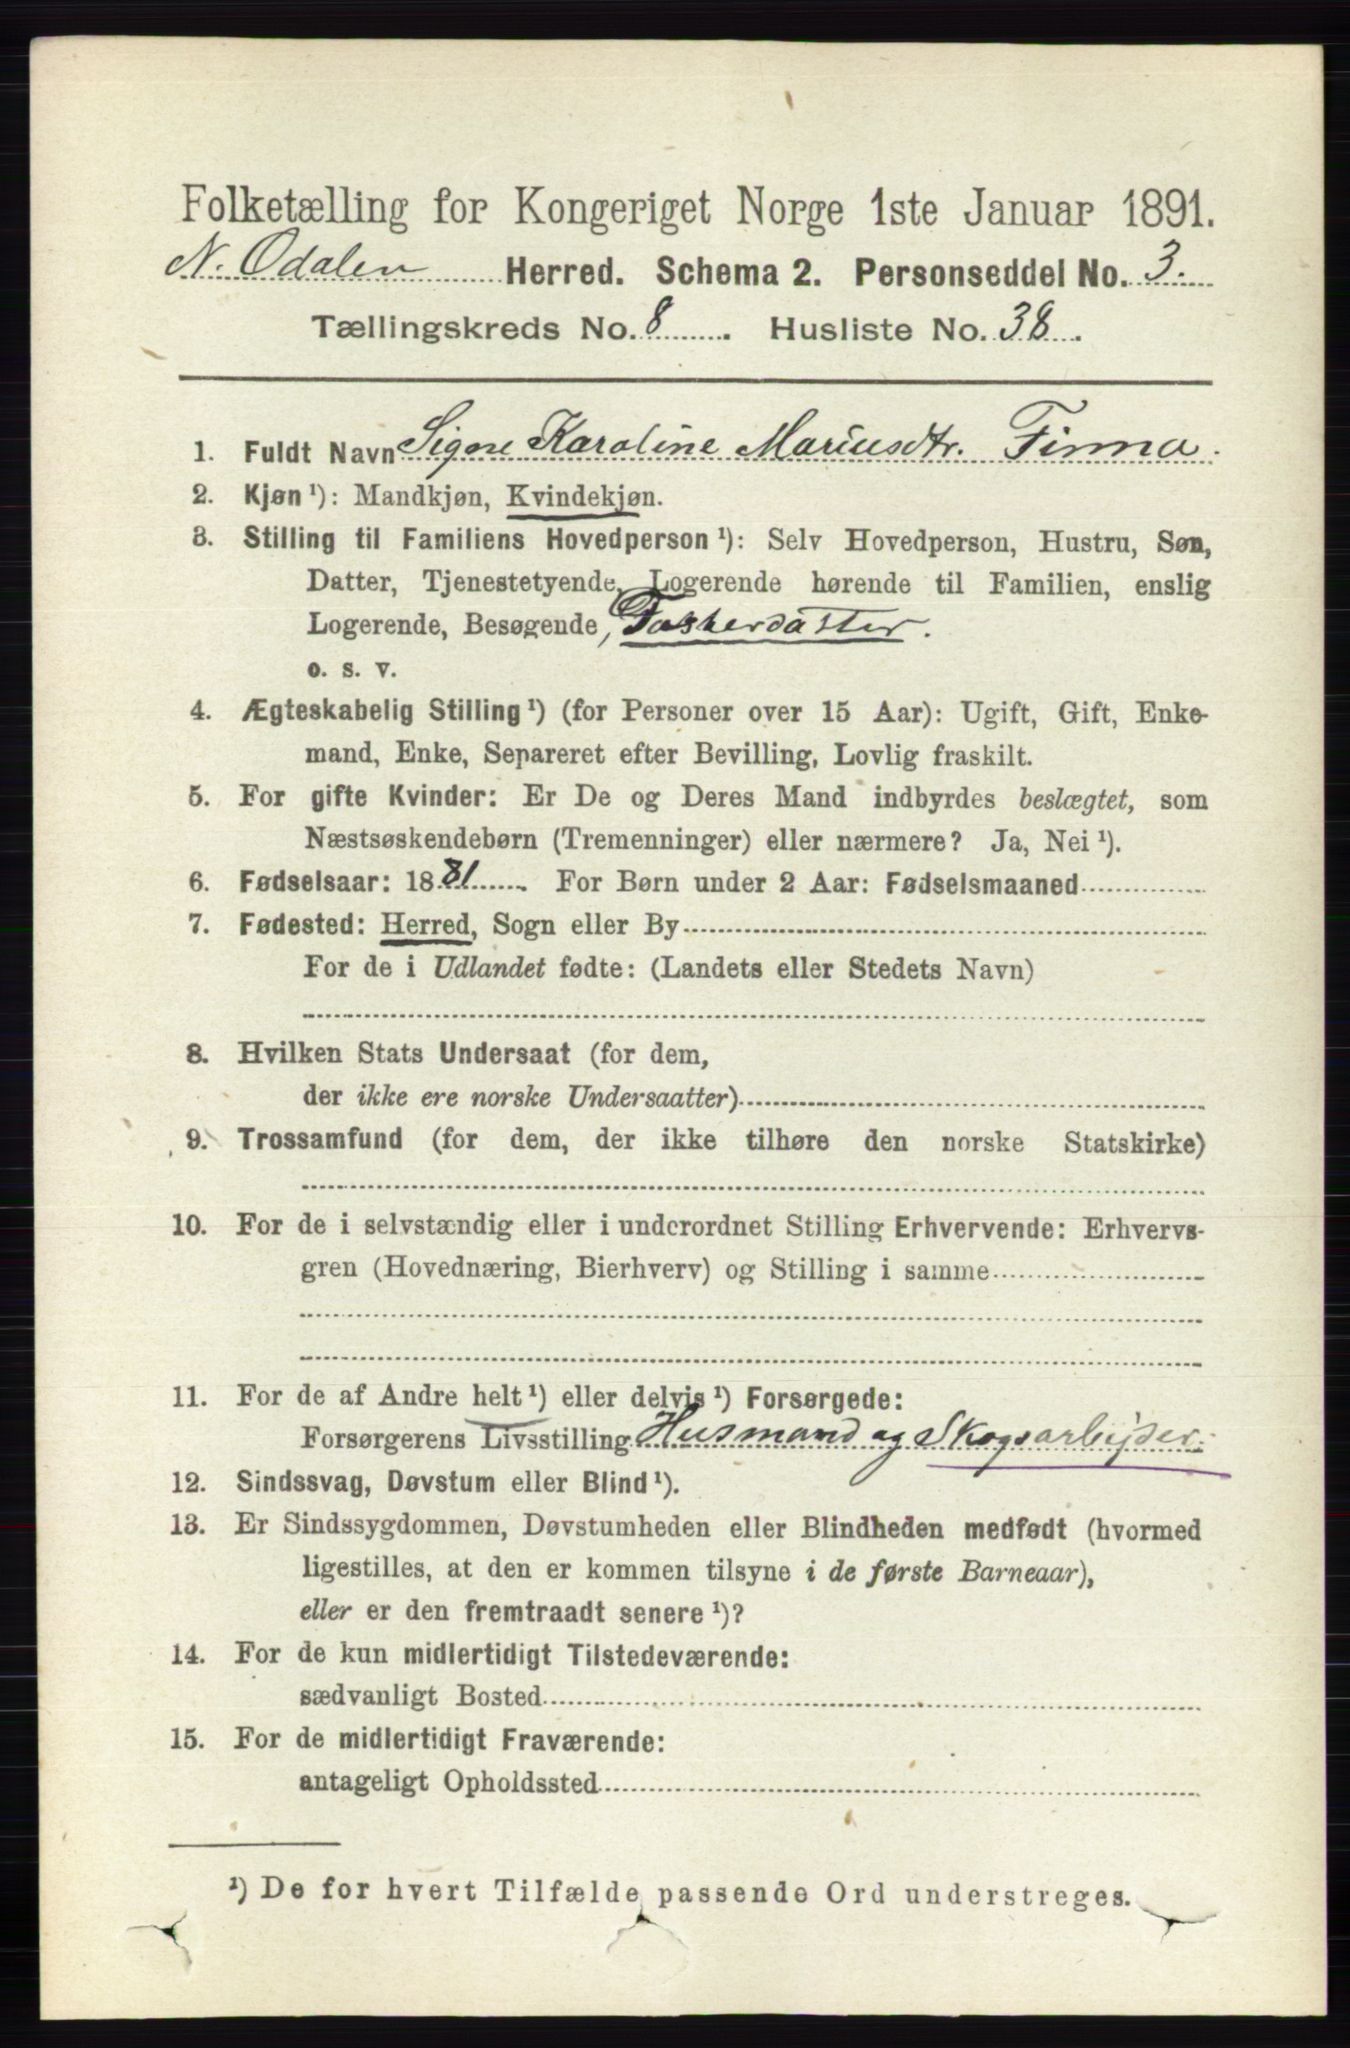 Folketælling for Kongeriget Norge 1ste Januar 1891.
N. Odalen Herred. Schema 2. Personseddel No. 3.
Tællingskreds No. 8 . Husliste No. 38.
1. Fuldt Navn Signe Karoline Mariusdtr. Finna.
2. Kjøn ¹): Mandkjøn, Kvindekjøn.
3. Stilling til Familiens Hovedperson ¹): Selv Hovedperson, Hustru, Søn,
Datter, Tjenestetyende, Logerende hørende til Familien, enslig
Logerende, Besøgende, Fosterdatter.
o. s. v.
4. Ægteskabelig Stilling ¹) (for Personer over 15 Aar): Ugift, Gift, Enke-
mand, Enke, Separeret efter Bevilling, Lovlig fraskilt.
5. For gifte Kvinder: Er De og Deres Mand indbyrdes beslægtet, som
Næstsøskendebørn (Tremenninger) eller nærmere? Ja, Nei ¹).
6. Fødselsaar: 1881. For Børn under 2 Aar: Fødselsmaaned
7. Fødested: Herred, Sogn eller By
For de i Udlandet fødte: (Landets eller Stedets Navn)
8. Hvilken Stats Undersaat (for dem,
der ikke ere norske Undersaatter)
9. Trossamfund (for dem, der ikke tilhøre den norske Statskirke)
10. For de i selvstændig eller i underordnet Stilling Erhvervende: Erhvervs-
gren (Hovednæring, Bierhverv) og Stilling i samme
11. For de af Andre helt ¹) eller delvis ¹) Forsørgede:
Forsørgerens Livsstilling Husmand og Skogsarbejder.
12. Sindssvag, Døvstum eller Blind ¹).
13. Er Sindssygdommen, Døvstumheden eller Blindheden medfødt (hvormed
ligestilles, at den er kommen tilsyne i de første Barneaar),
eller er den fremtraadt senere ¹)?
14. For de kun midlertidigt Tilstedeværende:
sædvanligt Bosted
15. For de midlertidigt Fraværende:
antageligt Opholdssted
¹) De for hvert Tilfælde passende Ord understreges.